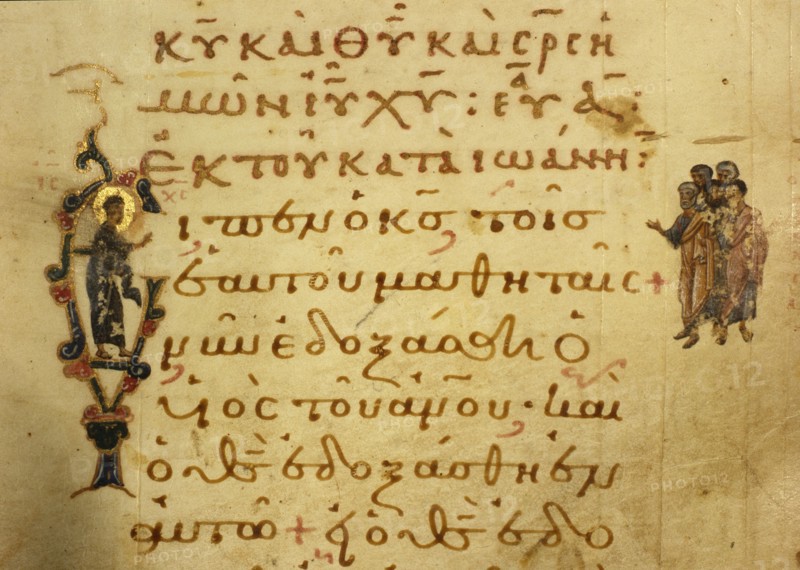 κῡ καὶ θῡ καὶ σρ̄ς ἡ
μῶν ἰῡ χῡ : εὐα :
Ἐκ τοῦ κατὰ ιωάννη:
ιπεν ὁ κ̄ς τοῖς
ἑαυτοῦ μαθηταῖς +
νῦν ἐδοξάσθη ὁ
υἱὸς τοῦ ἀν̄ου · καὶ
ὁ θ̄ς ἐδοξάσθη ἐν
αὐτῶ + εἰ ὁ θ̄ς ἐδο
PHOTO12